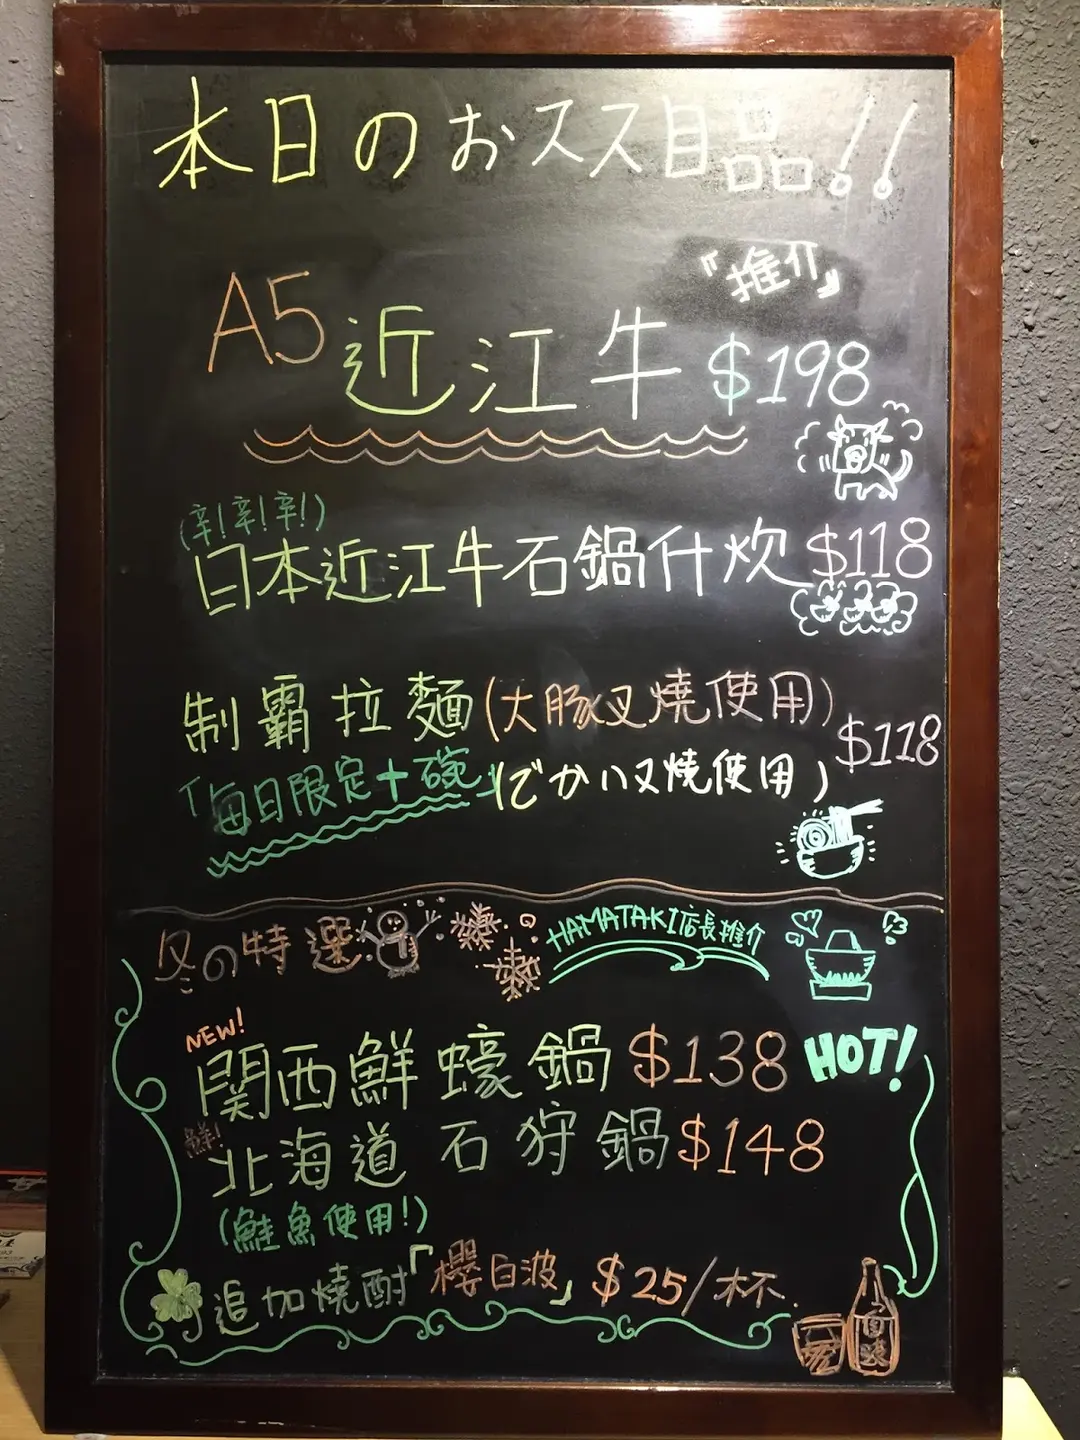 本日のおススメ品!!
『推介』
A5 近江牛 $198
(辛!辛!辛!)
日本近江牛石鍋什炊 $118
制霸拉麵(大豚叉燒使用)
$118
「每日限定十碗」(でかい叉燒使用)
冬の特選
HAMATAKI店長推介
NEW!
関西鮮蠔鍋 $138 HOT!
鮮!
北海道 石狩鍋 $148
(鮭魚使用!)
追加燒酎「櫻白波」 $25/杯.